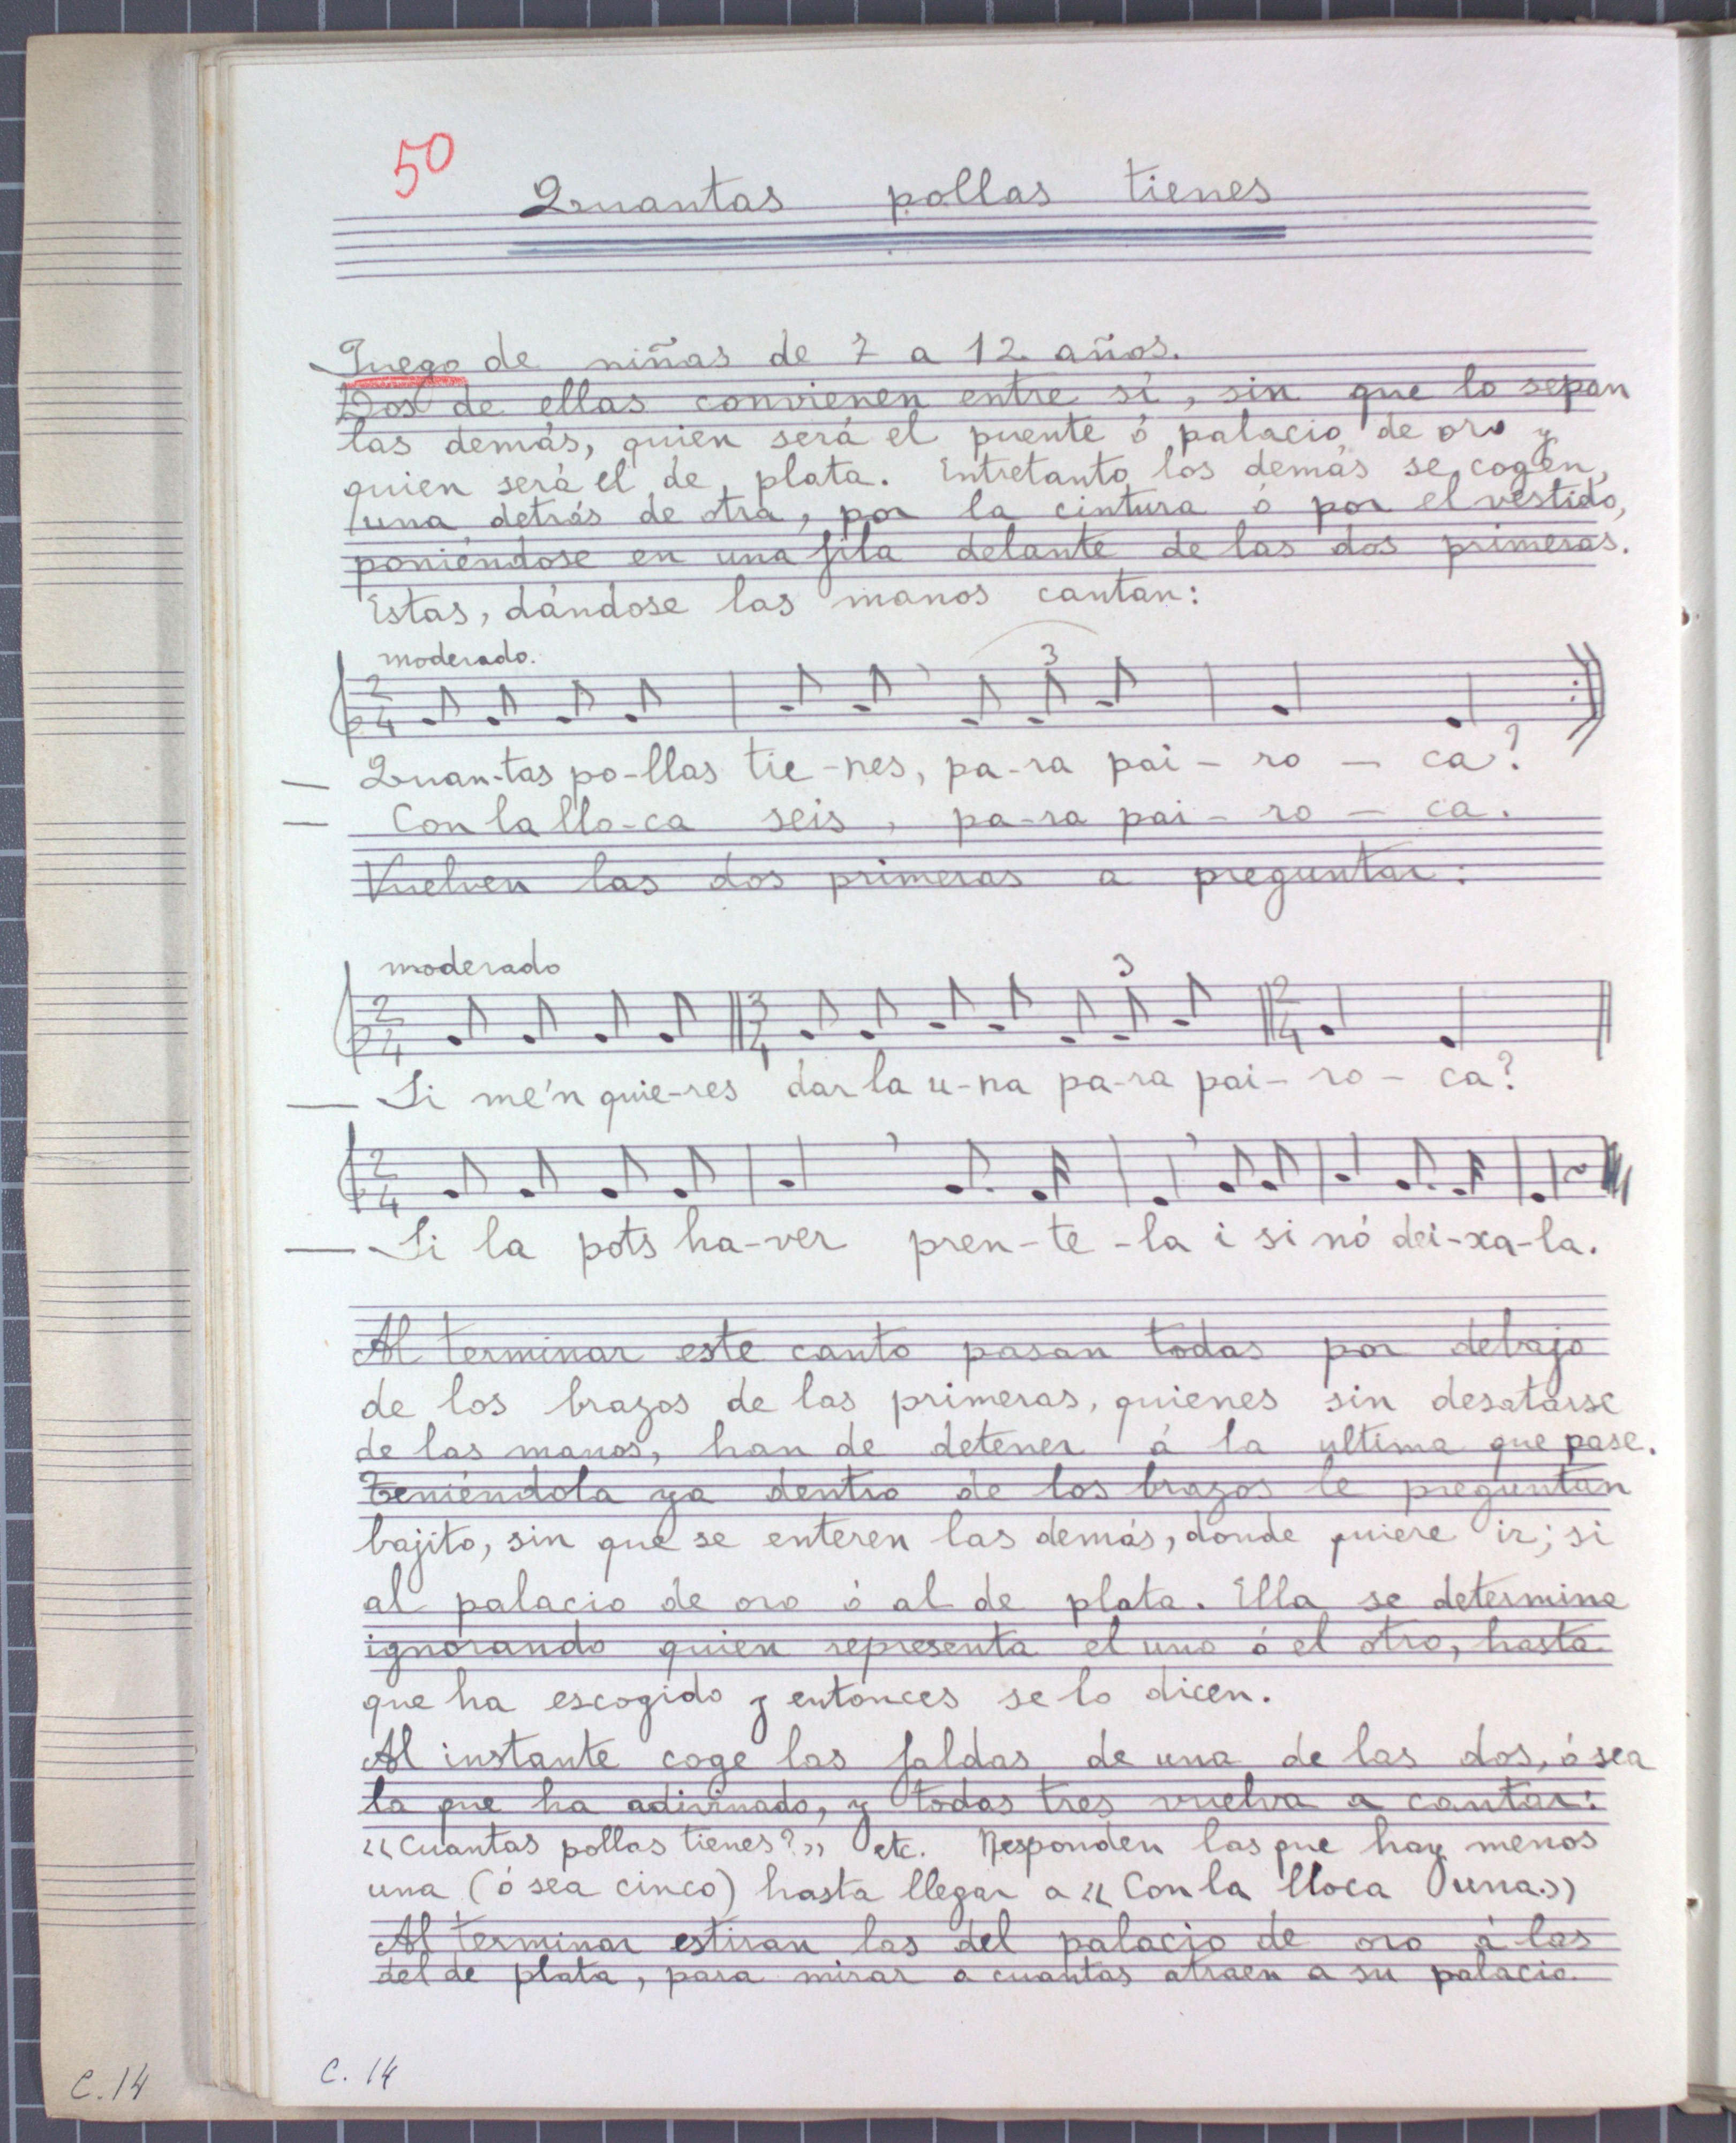 50
Quantas pollas tienes
Juego de niñas de 7 a 12 años.
Dos de ellas convienen entre sí, sin que lo sepan
las demás, quien será el puente ó palacio de oro y
quien será el de plata. Entretanto las demás se cogen,
una detrás de otra, por la cintura ó por el vestido,
poniéndose en una fila delante de las dos primeras.
Estas, dándose las manos cantan:
moderado.
3
2
4
— Quan-tas po-llas tie-nes, pa-ra pai-ro-ca?
— Con la llo-ca seis, pa-ra pai-ro-ca.
Vuelven las dos primeras a preguntar:
moderado
3
2 3 2
4 4 4
— Si me'n quie-res dar la u-na pa-ra pai-ro-ca?
2
4
— Si la pots ha-ver pren-te-la i si nó dei-xa-la.
Al terminar este canto pasan todas por debajo
de los brazos de las primeras, quienes sin desatarse
de las manos, han de detener á la ultima que pase.
Teniéndola ya dentro de los brazos le preguntan
bajito, sin que se enteren las demás, donde quiere ir; si
al palacio de oro ó al de plata. Ella se determina
ignorando quien representa el uno ó el otro, hasta
que ha escogido y entonces se lo dicen.
Al instante coge las faldas de una de las dos, ó sea
la que ha adivinado, y todas tres vuelva a cantar:
"Cuantas pollas tienes?" etc. Responden las que hay menos
una (ó sea cinco) hasta llegar a "Con la lloca una."
Al terminar estiran las del palacio de oro á las
del de plata, para mirar a cuantas atraen a su palacio.
C. 14
C. 14